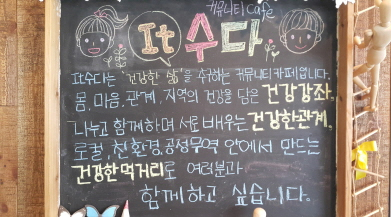 커뮤니티 Cafe
It 수다
It수다는 "건강한 삶"을 추구하는 커뮤니티 카페입니다.
몸, 마음, 관계, 지역의 건강을 담은 건강강좌,
나누고 함께하며 서로 배우는 건강한관계,
로컬, 친환경, 공정무역 안에서 만드는
건강한먹거리로 여러분과
함께하고 싶습니다.